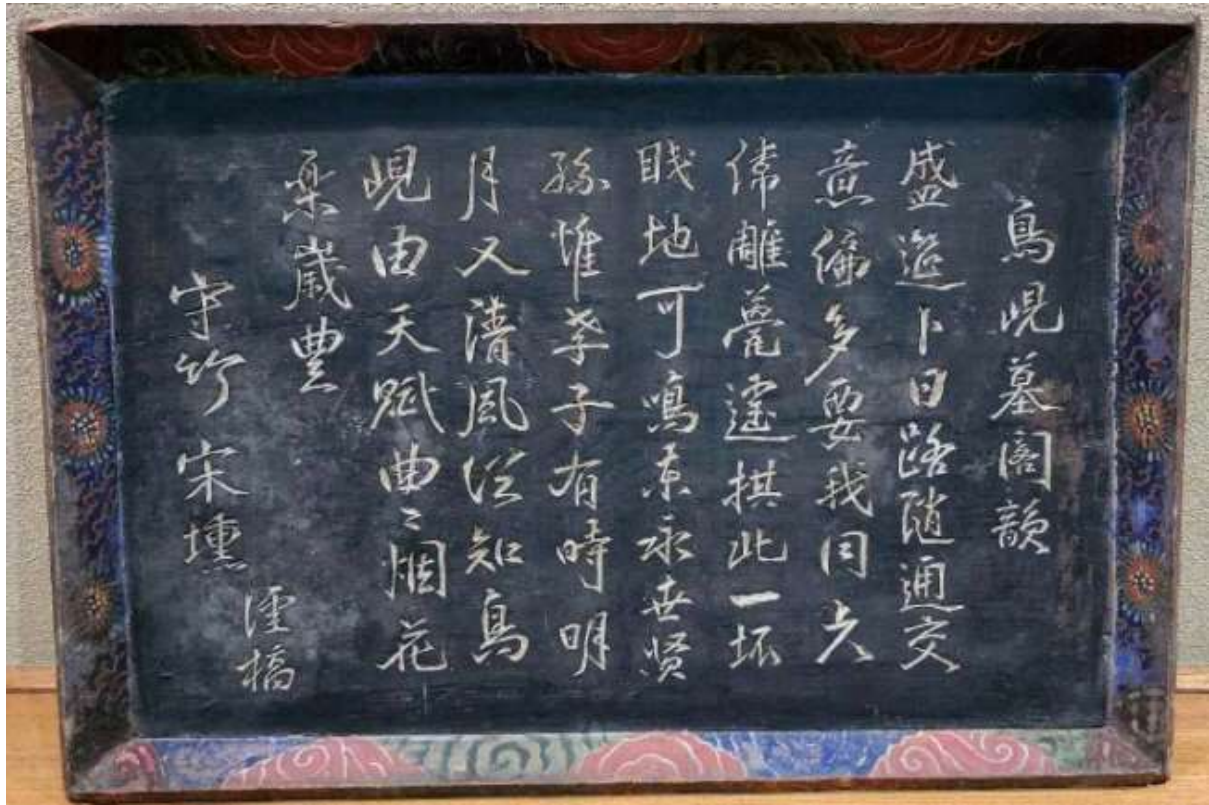 鳥峴墓閣韻
盛筵卜日路隨通交
意偏多要我同
離甍遽拱此一坏
地可鳴哀永世賢
孫惟孝子有時明
月又清風從知鳥
峴由天賦曲〻烟花
樂歲豊
守竹 宋壎
橋